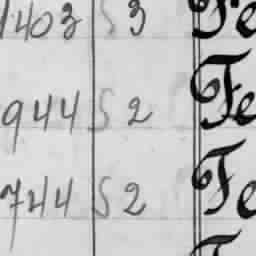 1403 S 3 Fe
944 S 2 Fe
744 S 2 Fe